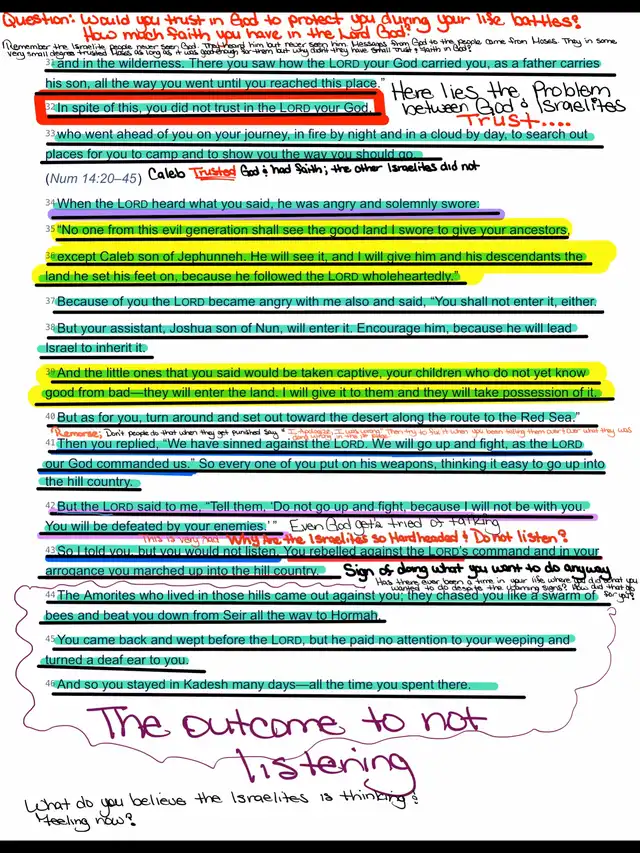 Question: Would you trust in God to protect you during your life battles?
How much faith you have in the Lord God?
Remember the Israelite people never seen God. They heard him but never seen him. Messages from God to the people came from Moses. They in some
very small degree trusted Moses as long as it was good enough for them but why didn't they have small trust & faith in God?
31 and in the wilderness. There you saw how the LORD your God carried you, as a father carries
his son, all the way you went until you reached this place."
Here lies the Problem
between God & Israelites
Trust....
32 In spite of this, you did not trust in the LORD your God,
33 who went ahead of you on your journey, in fire by night and in a cloud by day, to search out
places for you to camp and to show you the way you should go.
(Num 14:20–45) Caleb Trusted God & had faith; the other Israelites did not
34 When the LORD heard what you said, he was angry and solemnly swore:
35 "No one from this evil generation shall see the good land I swore to give your ancestors,
36 except Caleb son of Jephunneh. He will see it, and I will give him and his descendants the
land he set his feet on, because he followed the LORD wholeheartedly."
37 Because of you the LORD became angry with me also and said, "You shall not enter it, either.
38 But your assistant, Joshua son of Nun, will enter it. Encourage him, because he will lead
Israel to inherit it.
39 And the little ones that you said would be taken captive, your children who do not yet know
good from bad—they will enter the land. I will give it to them and they will take possession of it.
40 But as for you, turn around and set out toward the desert along the route to the Red Sea."
"Remorse; Don't people do that when they get punished say "I Apologize, I was wrong" Then try to fix it when you been telling them over & over what they was
doing wrong in the 1st place.
41 Then you replied, "We have sinned against the LORD. We will go up and fight, as the LORD
our God commanded us." So every one of you put on his weapons, thinking it easy to go up into
the hill country.
42 But the LORD said to me, "Tell them, 'Do not go up and fight, because I will not be with you.
You will be defeated by your enemies.'" Even God gets tried of talking
This is very hard Why Are the Israelites so Hardheaded & Do not listen?
43 So I told you, but you would not listen. You rebelled against the LORD's command and in your
arrogance you marched up into the hill country. Sign of doing what you want to do anyway
Has there ever been a time in your life where you did what you
wanted to do despite the warning signs? How did that go
for you?
44 The Amorites who lived in those hills came out against you; they chased you like a swarm of
bees and beat you down from Seir all the way to Hormah.
45 You came back and wept before the LORD, but he paid no attention to your weeping and
turned a deaf ear to you.
46 And so you stayed in Kadesh many days—all the time you spent there.
The outcome to not
listening
What do you believe the Israelites is thinking &
feeling now?